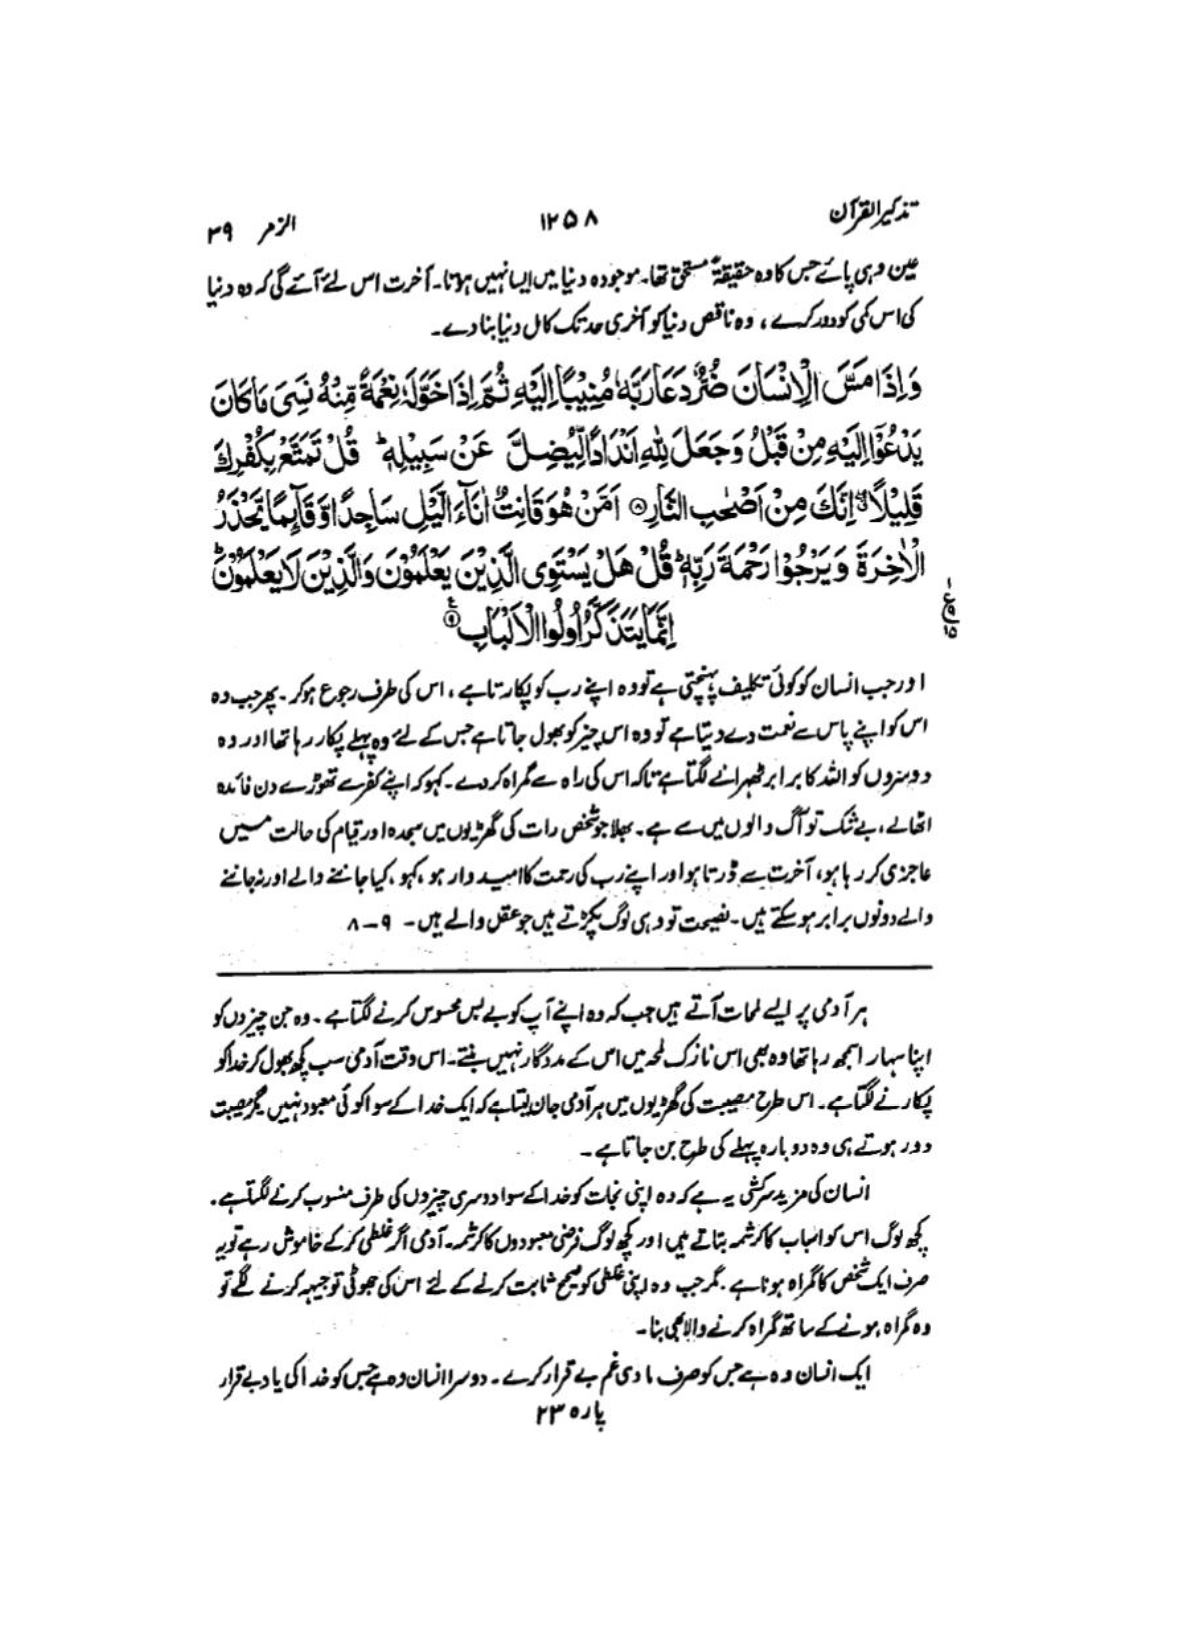 تذکیرالقرآن ۱۲۵۸ الزمر ۳۹
عین وہی پائے جس کا وہ حقیقۃً مستحق تھا۔ موجودہ دنیا میں ایسا نہیں ہوتا۔ آخرت اس لئے آئے گی کہ وہ دنیا
کی اس کمی کو دور کرے، وہ ناقص دنیا کو آخری حد تک کامل دنیا بنا دے۔
وَاِذَا مَسَّ الْاِنْسَانَ ضُرٌّ دَعَا رَبَّهٗ مُنِيْبًا اِلَيْهِ ثُمَّ اِذَا خَوَّلَهٗ نِعْمَةً مِّنْهُ نَسِيَ مَا كَانَ
يَدْعُوْٓا اِلَيْهِ مِنْ قَبْلُ وَجَعَلَ لِلّٰهِ اَنْدَادًا لِّيُضِلَّ عَنْ سَبِيْلِهٖ ؕ قُلْ تَمَتَّعْ بِكُفْرِكَ
قَلِيْلًا ۖ اِنَّكَ مِنْ اَصْحٰبِ النَّارِ ۸ اَمَّنْ هُوَ قَانِتٌ اٰنَآءَ الَّيْلِ سَاجِدًا وَّقَآىِٕمًا يَّحْذَرُ
الْاٰخِرَةَ وَيَرْجُوْا رَحْمَةَ رَبِّهٖ ؕ قُلْ هَلْ يَسْتَوِي الَّذِيْنَ يَعْلَمُوْنَ وَالَّذِيْنَ لَا يَعْلَمُوْنَ ؕ
اِنَّمَا يَتَذَكَّرُ اُولُوا الْاَلْبَابِ ۹
اور جب انسان کو کوئی تکلیف پہنچتی ہے تو وہ اپنے رب کو پکارتا ہے، اس کی طرف رجوع ہو کر۔ پھر جب وہ
اس کو اپنے پاس سے نعمت دے دیتا ہے تو وہ اس چیز کو بھول جاتا ہے جس کے لئے وہ پہلے پکار رہا تھا اور وہ
دوسروں کو اللہ کا برابر ٹھہرانے لگتا ہے تاکہ اس کی راہ سے گمراہ کر دے۔ کہو کہ اپنے کفر سے تھوڑے دن فائدہ
اٹھالے، بے شک تو آگ والوں میں سے ہے۔ بھلا جو شخص رات کی گھڑیوں میں سجدہ اور قیام کی حالت میں
عاجزی کر رہا ہو، آخرت سے ڈرتا ہو اور اپنے رب کی رحمت کا امیدوار ہو، کہو، کیا جاننے والے اور نہ جاننے
والے دونوں برابر ہو سکتے ہیں۔ نصیحت تو وہی لوگ پکڑتے ہیں جو عقل والے ہیں۔ ۹-۸
ہر آدمی پر ایسے لمحات آتے ہیں جب کہ وہ اپنے آپ کو بے بس محسوس کرنے لگتا ہے۔ وہ جن چیزوں کو
اپنا سہارا سمجھ رہا تھا وہ بھی اس نازک لمحہ میں اس کے مددگار نہیں بنتے۔ اس وقت آدمی سب کچھ بھول کر خدا کو
پکارنے لگتا ہے۔ اس طرح مصیبت کی گھڑیوں میں ہر آدمی جان لیتا ہے کہ ایک خدا کے سوا کوئی معبود نہیں مگر مصیبت
دور ہوتے ہی وہ دوبارہ پہلے کی طرح بن جاتا ہے۔
انسان کی مزید سرکشی یہ ہے کہ وہ اپنی نجات کو خدا کے سوا دوسری چیزوں کی طرف منسوب کرنے لگتا ہے۔
کچھ لوگ اس کو اسباب کا کرشمہ بتاتے ہیں اور کچھ لوگ فرضی معبودوں کا کرشمہ۔ آدمی اگر غلطی کر کے خاموش رہے تو یہ
صرف ایک شخص کا گمراہ ہونا ہے۔ مگر جب وہ اپنی غلطی کو صحیح ثابت کرنے کے لئے اس کی جھوٹی توجیہہ کرنے لگے تو
وہ گمراہ ہونے کے ساتھ گمراہ کرنے والا بھی بنا۔
ایک انسان وہ ہے جس کو صرف مادی غم بے قرار کرے۔ دوسرا انسان وہ ہے جس کو خدا کی یاد بے قرار
پارہ ۲۳